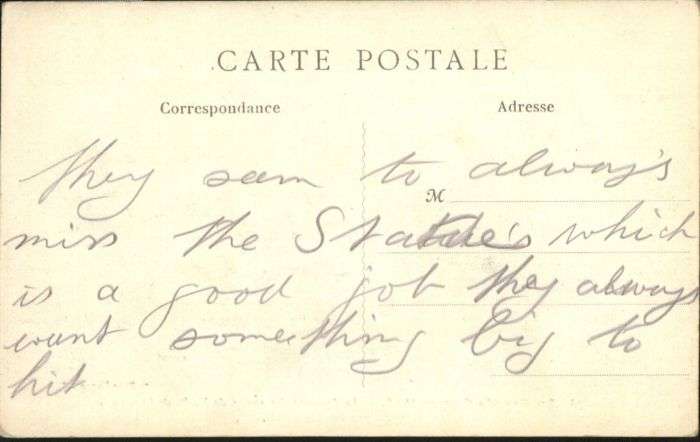 CARTE POSTALE
Correspondance
Adresse
M
they seem to always
miss the Statue's which
is a good job they always
want something big to
hit